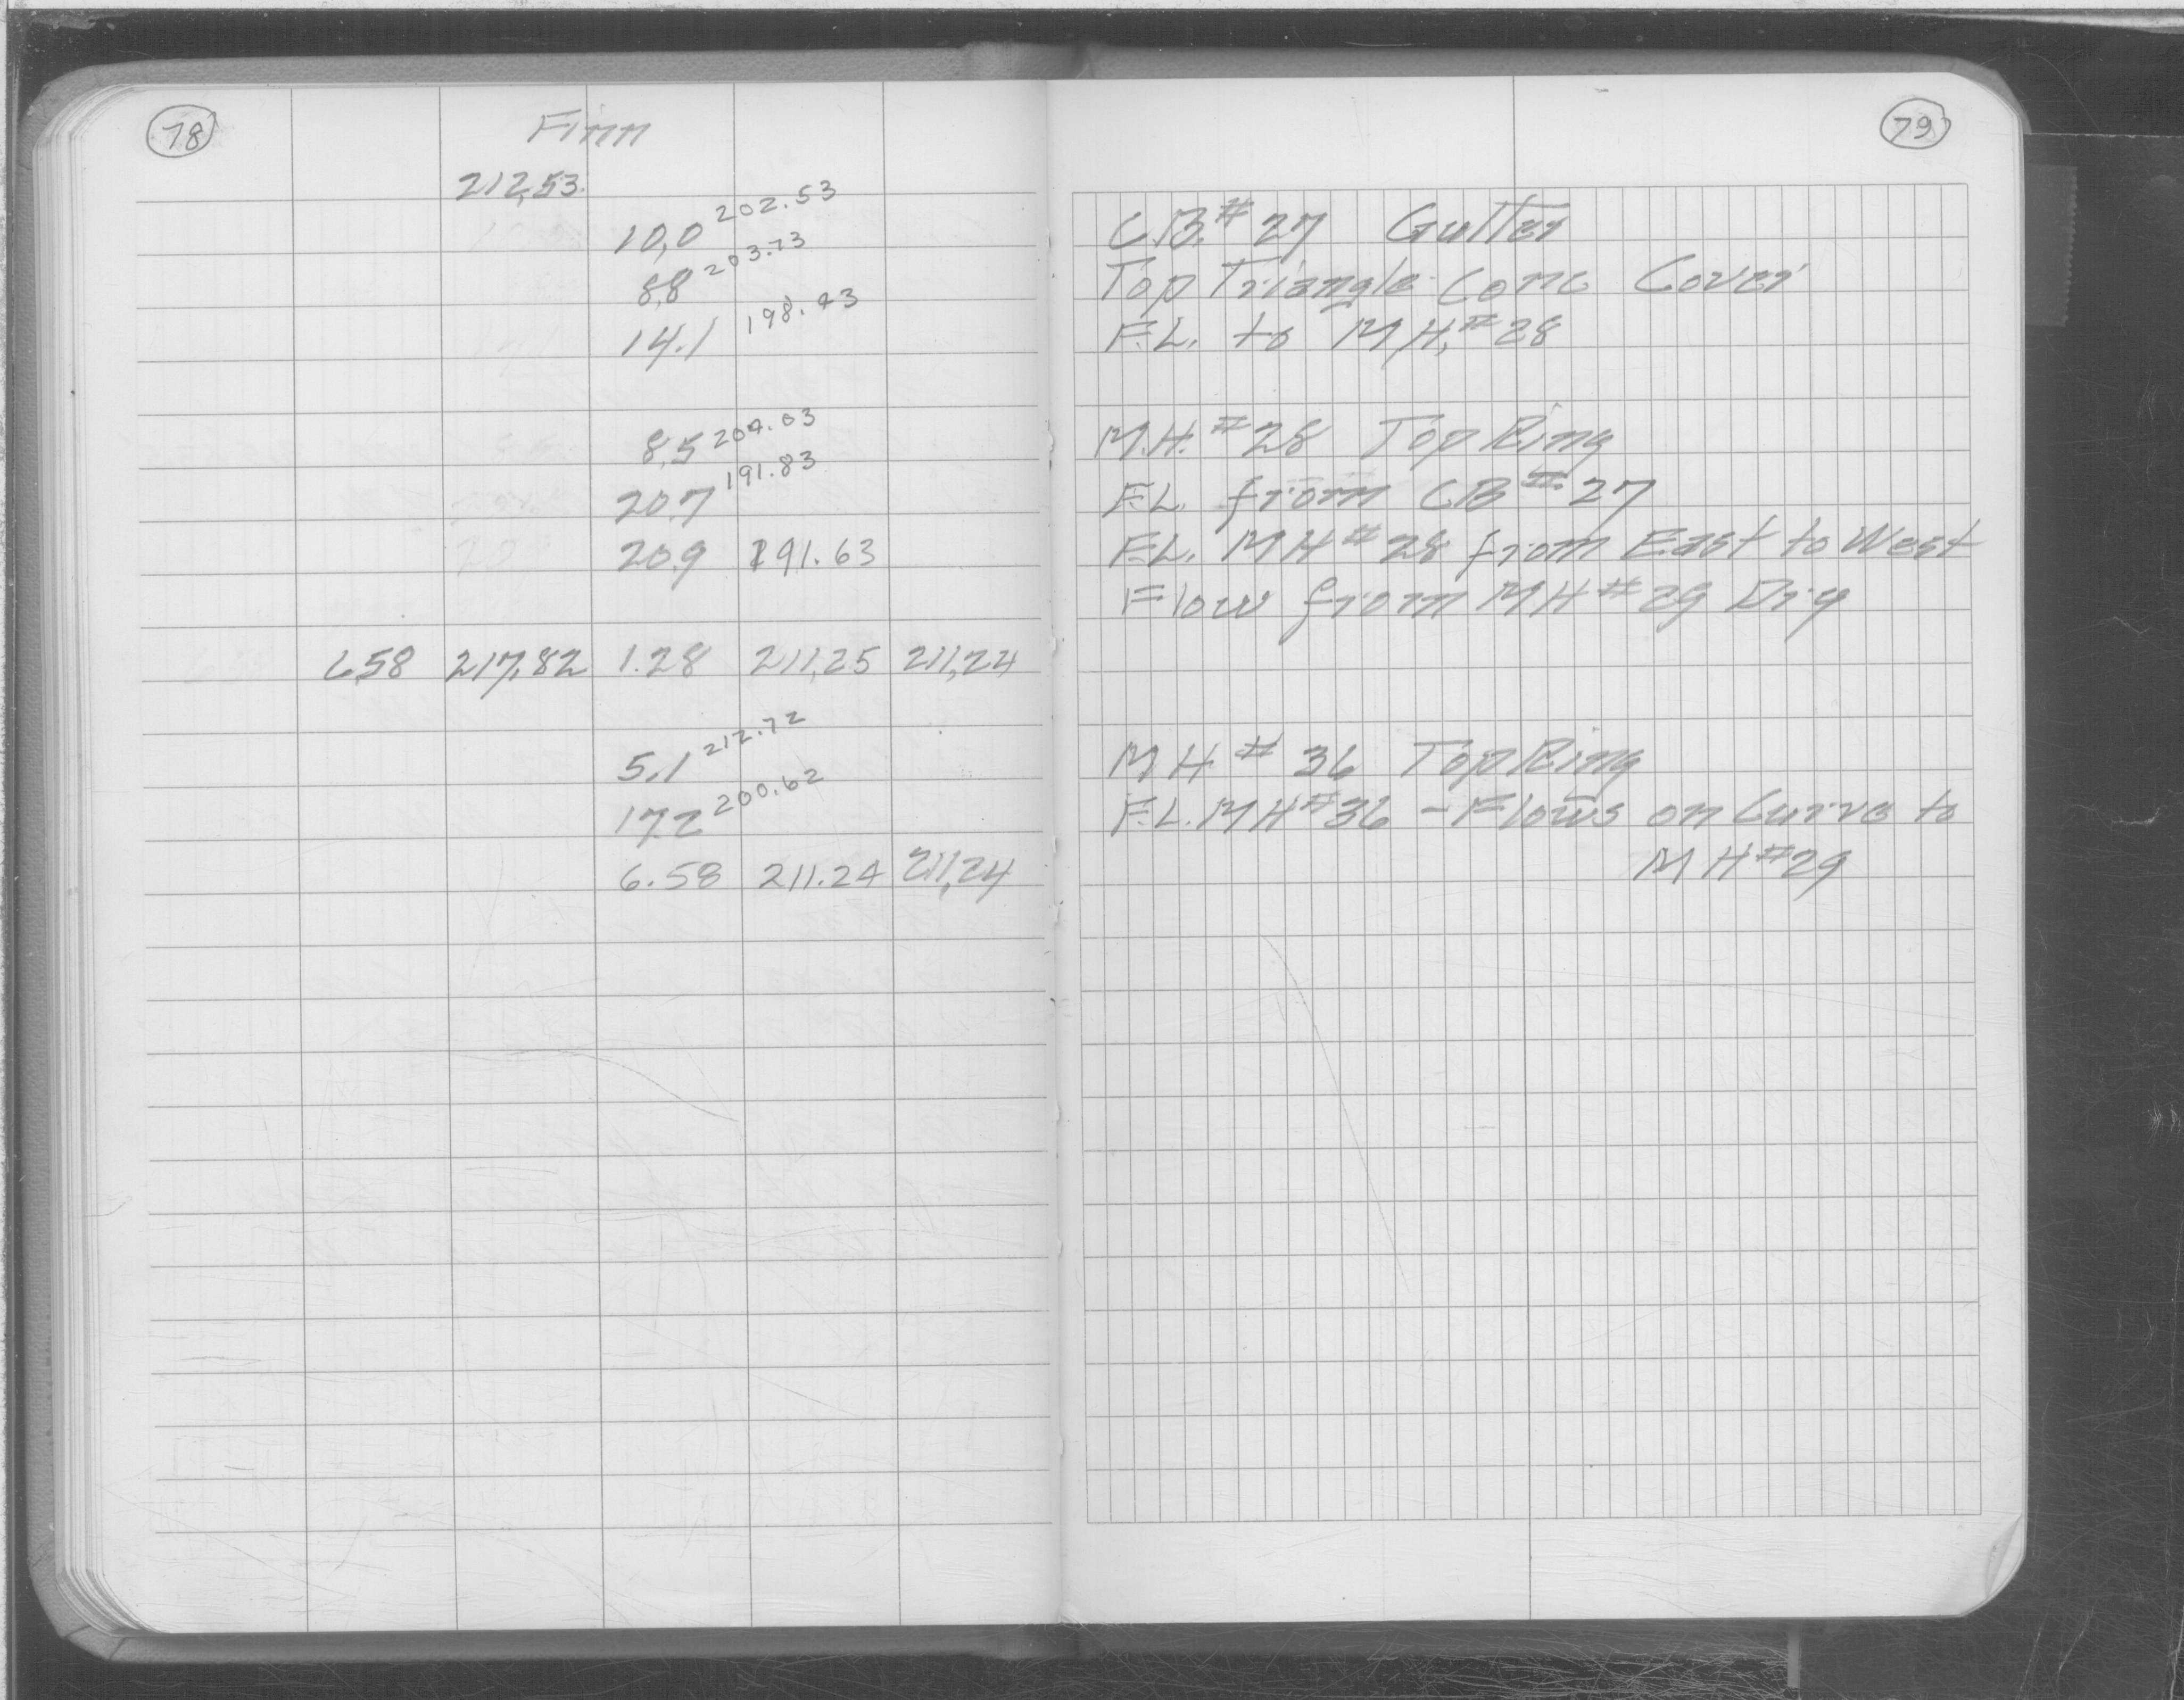 78
Finn
212.53
10.0 202.53
8.8 203.73
14.1 198.43
8.5 204.03
20.7 191.83
20.9 191.63
6.58 217.82 1.28 211.25 211.24
5.1 212.72
17.2 200.62
6.58 211.24 211.24
79
C.B. # 27 Gutter
Top Triangle Conc Cover
F.L. to M.H. # 28
M.H. # 28 Top Ring
F.L. from CB # 27
F.L. MH # 28 from East to West
Flow from MH # 29 Dry
MH # 36 Top Ring
F.L. MH # 36 - Flows on Curve to
MH # 29